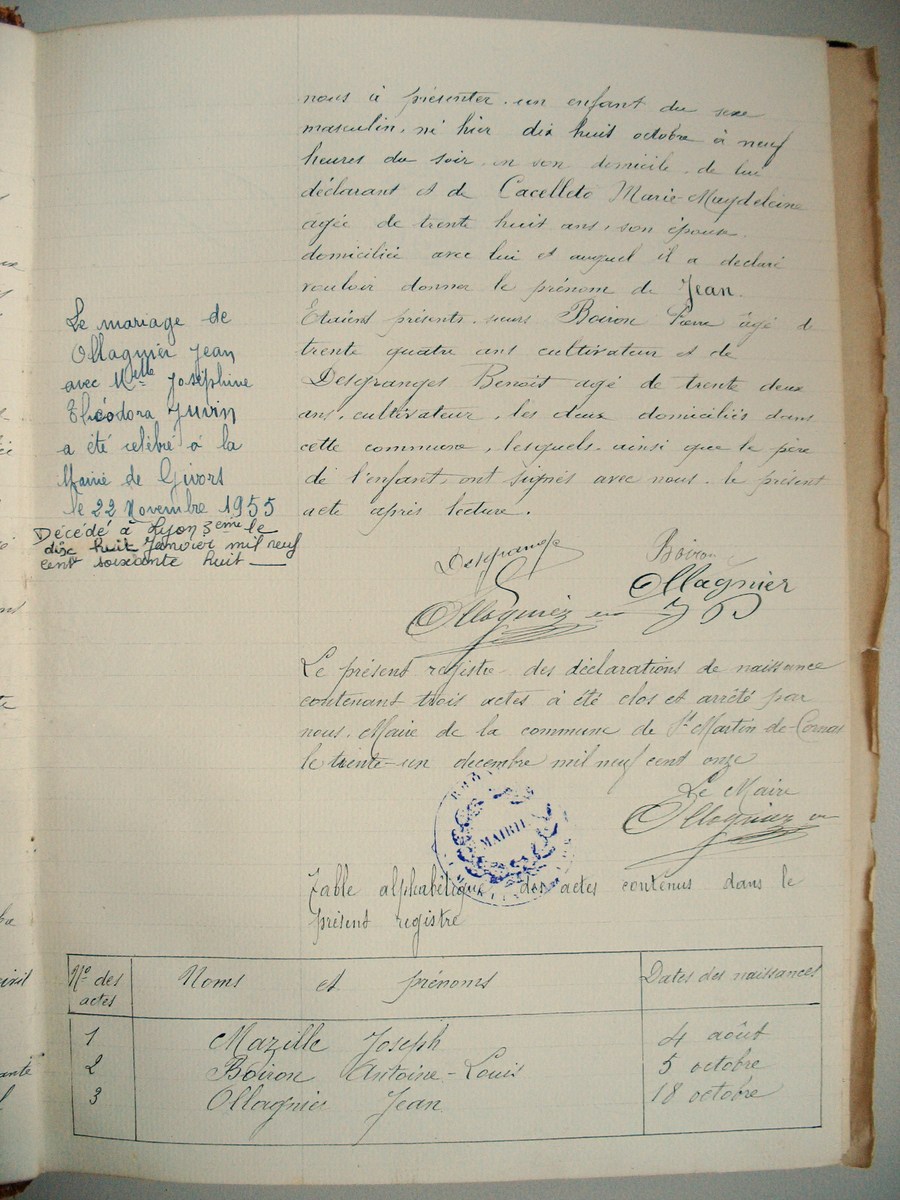 nous a présenter un enfant du sexe
masculin, né hier dix huit octobre à neuf
heures du soir en son domicile de lui
déclarant et de Cacelleto Marie Magdeleine
agée de trente huit ans, son épouse
domiciliée avec lui et auquel il a déclaré
vouloir donner le prénom de Jean.
Etaient présents Boiron Pierre âgé de
trente quatre ans cultivateur et de
Desgranges Benoit agé de trente deux
ans, cultivateur, les deux domiciliés dans
cette commune, lesquels ainsi que le père
de l'enfant, ont signés avec nous le présent
acte après lecture.
Le mariage de
Ollagnier Jean
avec Melle Joséphine
Théodora Juvin
a été célébré à la
Mairie de Givors
le 22 Novembre 1955
Décédé à Lyon 3eme le
dix huit Janvier mil neuf
cent soixante huit
Desgranges Boiron
Ollagnier
Ollagnier JP
Le présent registre des déclarations de naissance
contenant trois actes à été clos et arrêté par
nous, Maire de la commune de St Martin-de-Cornas
le trente-un decembre mil neuf cent onze
Le Maire
Ollagnier
MAIRIE
Table alphabétique des actes contenus dans le
présent registre
No des actes Noms et prénoms Dates des naissances
1 Mazille Joseph 4 août
2 Boiron Antoine-Louis 5 octobre
3 Ollagnier Jean 18 octobre